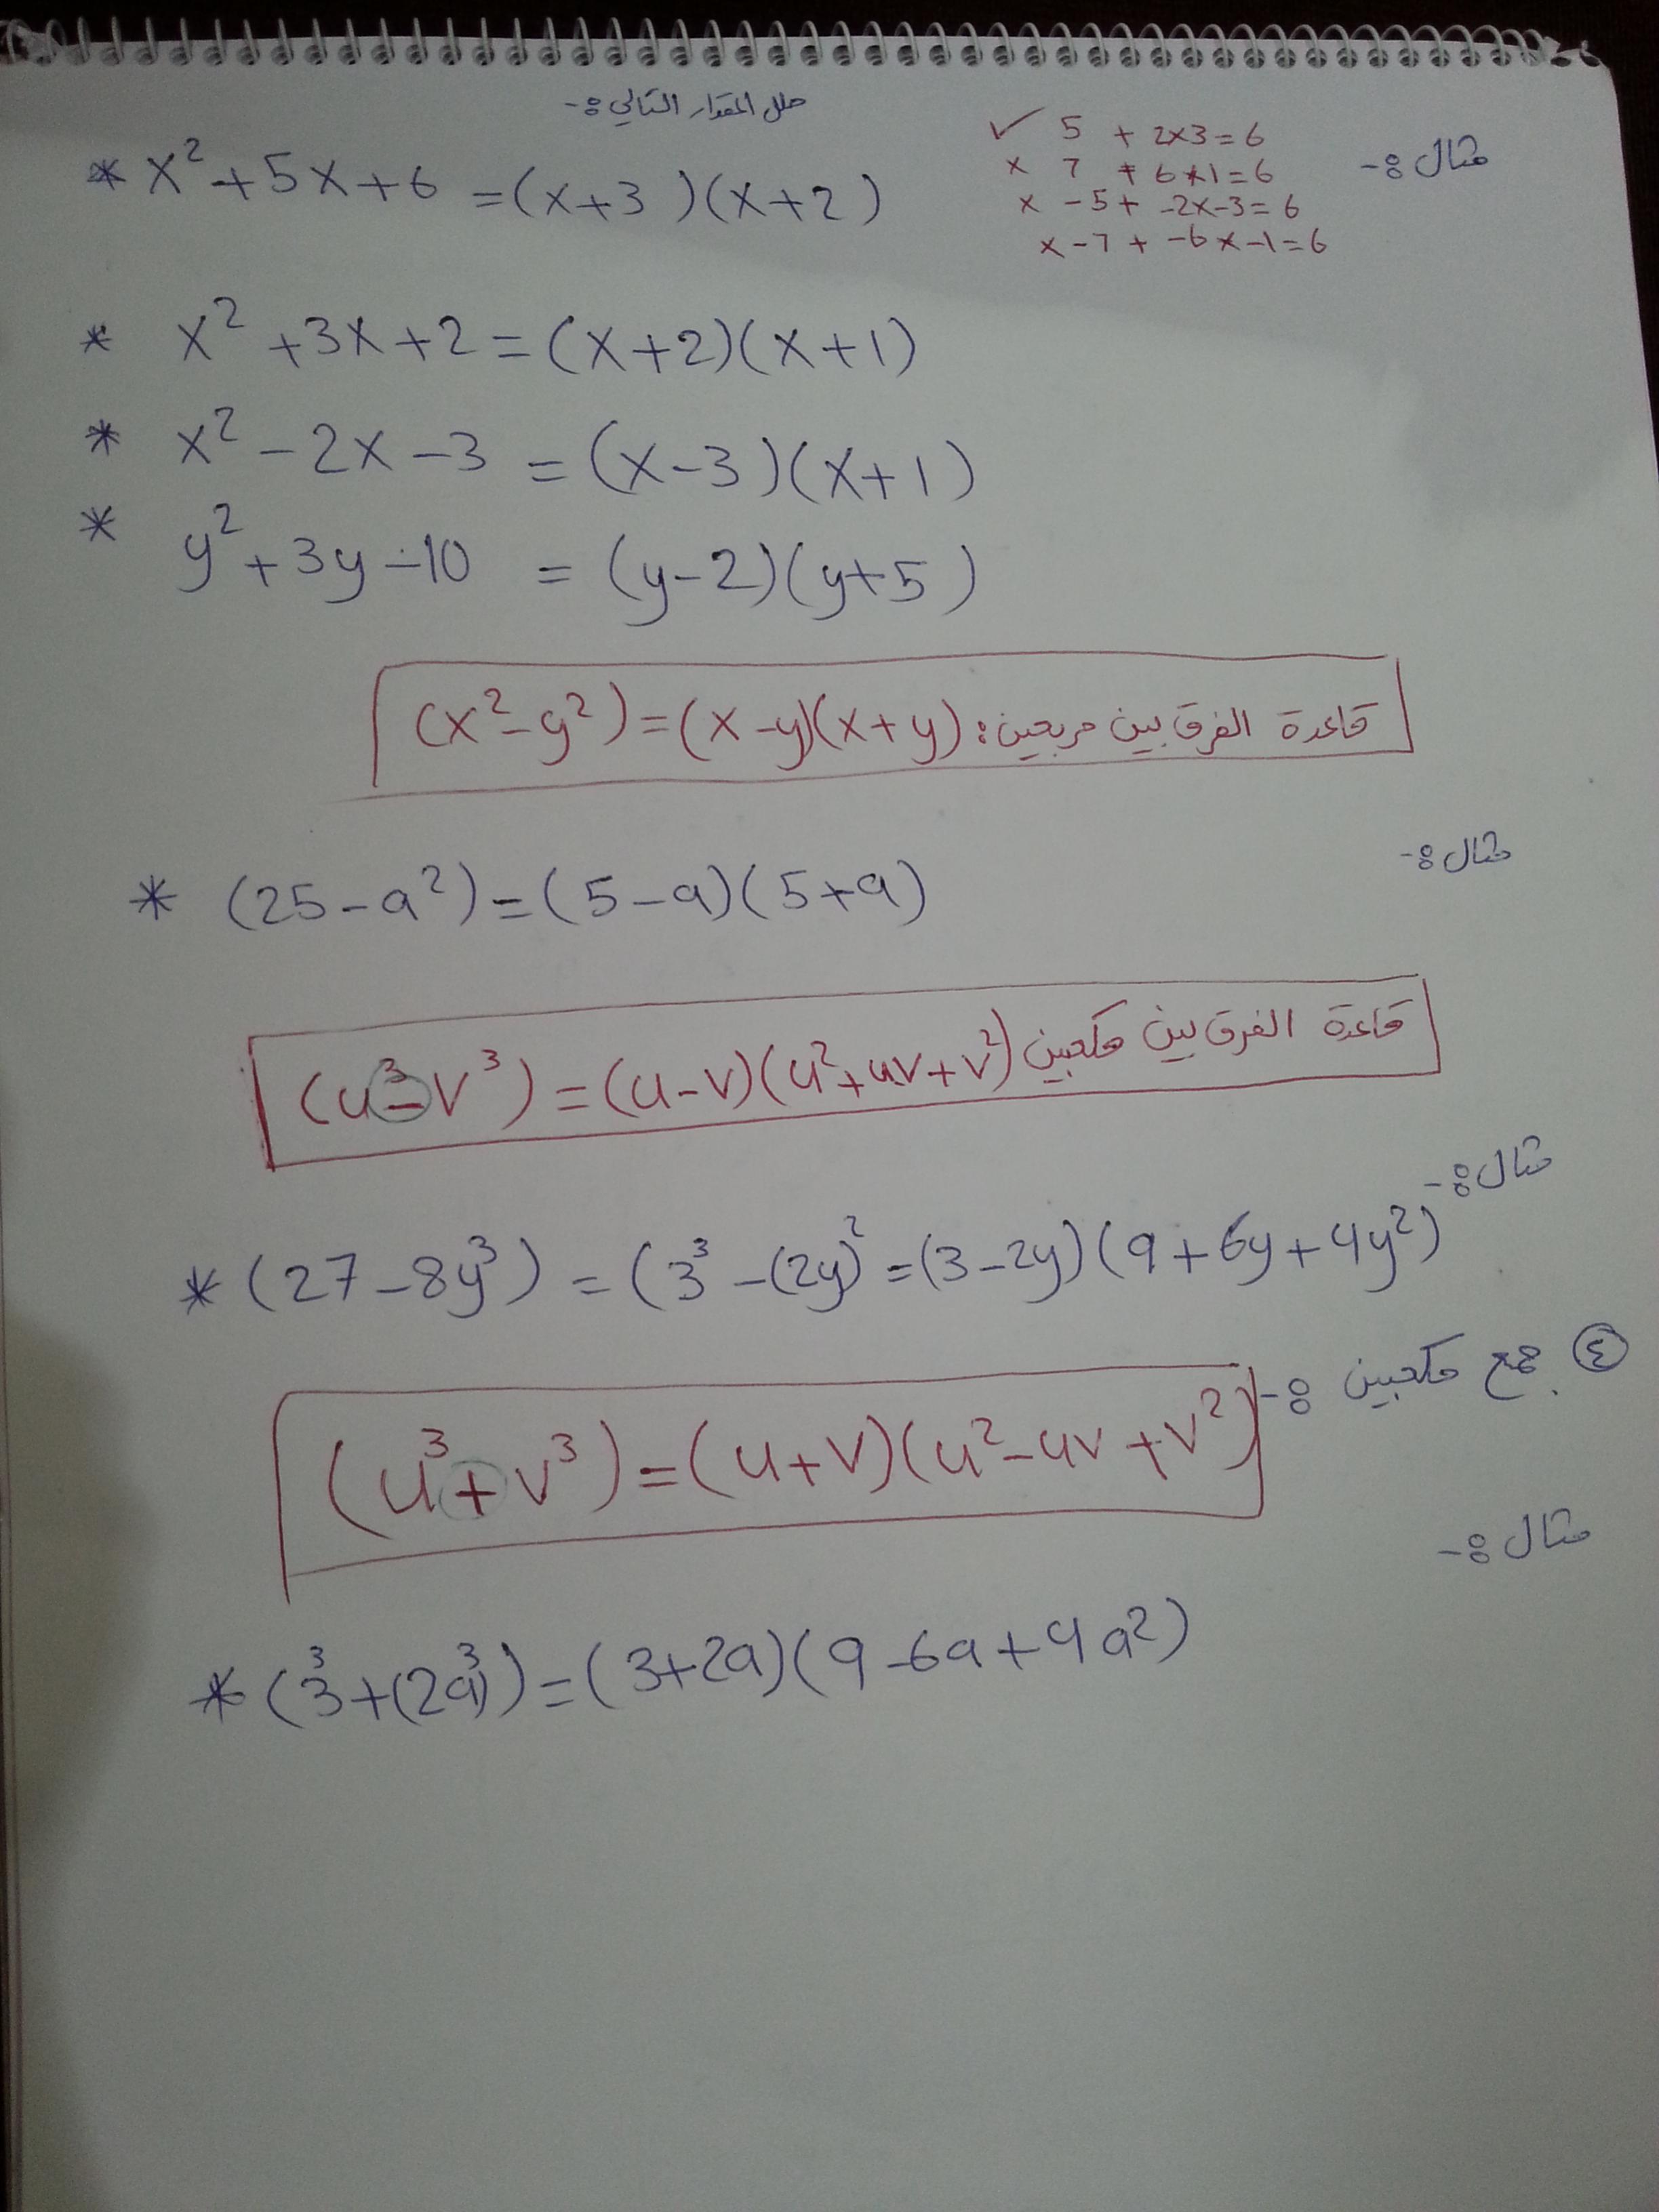 حلل المقدار التالي :-
مثال :-
✓ 5 + 2x3=6
x 7 + 6x1=6
x -5+ -2x-3=6
x -7 + -6x-1=6
* x²+5x+6 =(x+3)(x+2)
* x²+3x+2=(x+2)(x+1)
* x²-2x-3 =(x-3)(x+1)
* y²+3y-10 = (y-2)(y+5)
قاعدة الفرق بين مربعين: (x²-y²)=(x-y)(x+y)
مثال :-
* (25-a²)=(5-a)(5+a)
قاعدة الفرق بين مكعبين (u³-v³)=(u-v)(u²+uv+v²)
مثال :-
* (27-8y³) = (3³-(2y)²=(3-2y)(9+6y+4y²)
④ جمع مكعبين :-
(u³+v³)=(u+v)(u²-uv+v²)
مثال :-
* (3³+(2a)³)=(3+2a)(9-6a+4a²)